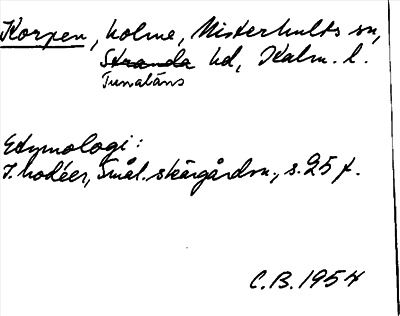 Korpen, holme, Misterhults sn,
Stranda hd, Kalm. l.
Tunaläns
Etymologi:
I. Modéer, Smål. skärgårdsn., s. 25 f.
C.B. 1954